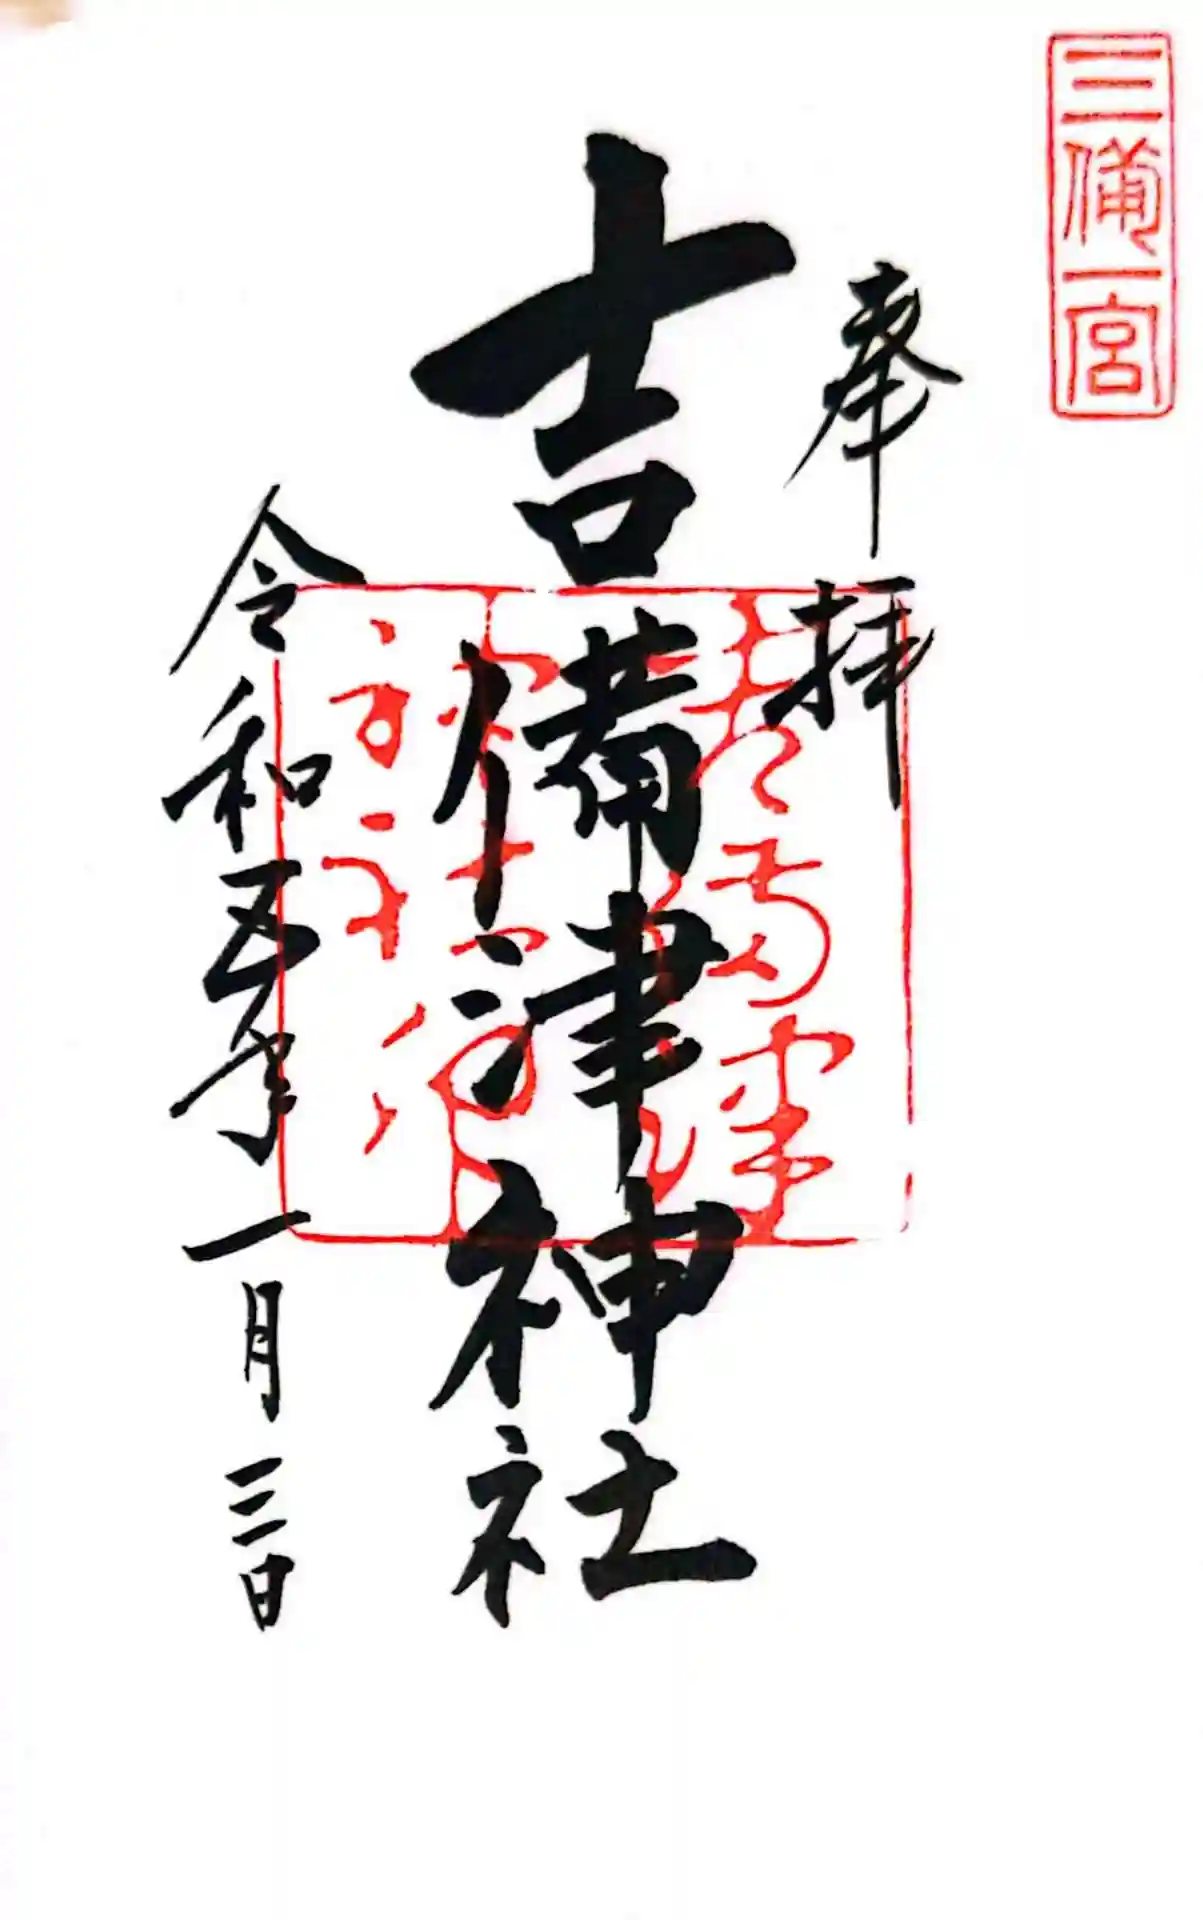 三備一宮
奉拝
吉備津神社
令和五年一月三日